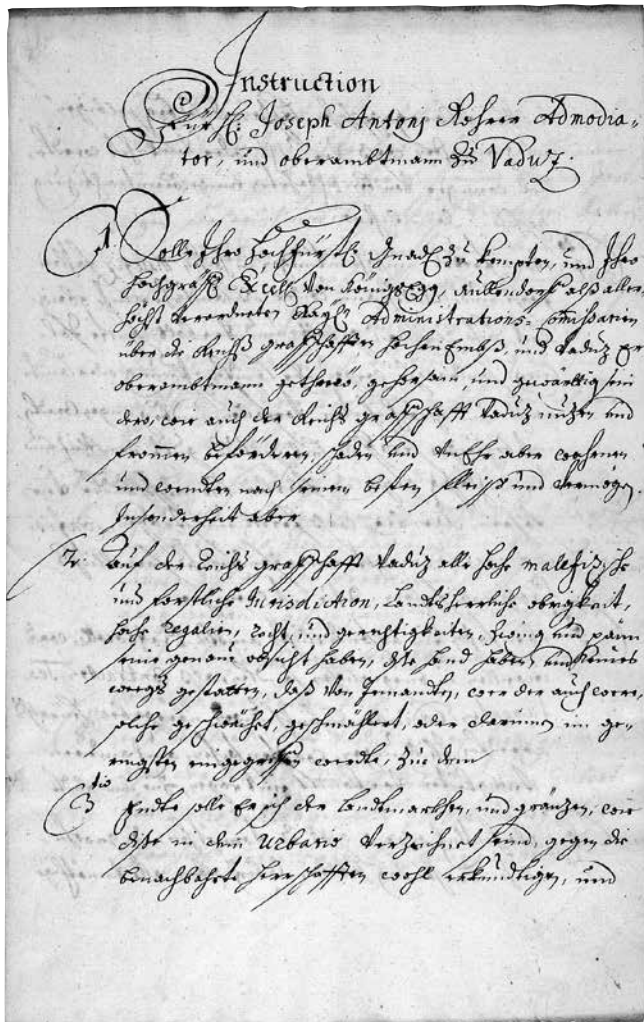 Instruction
Für H: Joseph Antonj Rohrer Admodia=
tor, und oberambtmann zu Vaduz.
1. Solle Ihro hochfürstl. Gnad. zu Kempten, und Ihro
hochgräffl. Excell. von Königsegg, Aullendorff alß aller
höchst verordneten Kayl. Administrations-Commissarien
über die Reichß graffschafften hochen Embß, und Vaduz Er
oberambtmann getreẅ, gehorsam, und gewärttig sein
dero, wie auch der Reichs graffschafft Vaduz nuzen und
frommen beförderen, schaden und UnEhr aber wahrnen
und wendten nach seinem besten fleiss und Vermögen.
Insonderheit aber
2. Auf der Reichs graffschafft Vaduz alle hoche malefizische
und forstliche Jurisdiction, Landtsherrliche obrigkeit,
hoche regalien, recht, und gerechtigkeiten, Zwing und pänn
seine genaue obsicht haben, dise hand haben, und keines
weegs gestatten, daß von Jemandten, wer der auch were,
solche geschwächet, geschmählert, oder darinnen im ge=
ringsten eingegriffen werdte, zue dem
3tio Endte solle Er sich der Landtmarkhen, und gränzen, wie
dise in dem Urbario verzeichnet seind, gegen die
benachbahrte herrschafften wohl erkundtigen, und